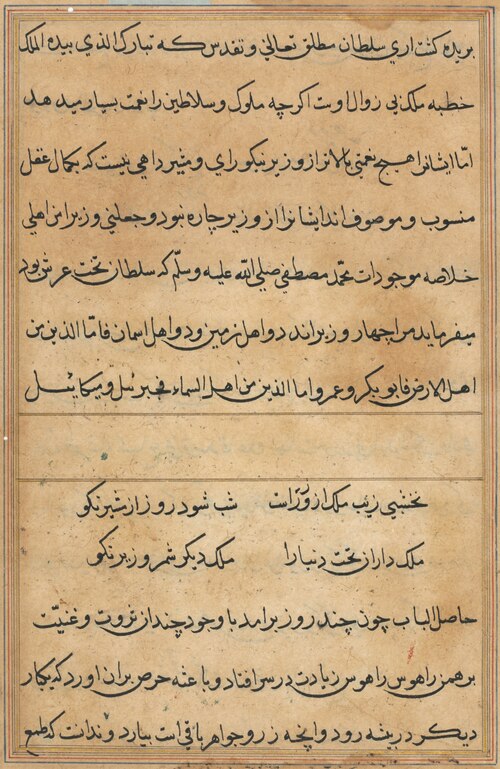 بریده کتداری سلطان مطلق تعالی و تقدس که تبارک الذی بیده الملک
خطبه ملک بی زوال اوست اکرچه ملوک و سلاطین را نعمت بسیار میدهد
امّا ایشانرا هیچ نعمتی بالاتر از وزیر نیکورای و مشیر داهی نیست که بکمال عقل
منسوب و موصوف اند ایشانرا از وزیر چاره نبود و جعلنی وزیرا من اهلی
خلاصه موجودات محمّد مصطفی صلی الله علیه وسلّم که سلطان تخت عرش بود
میفرماید مرا چهار وزیراند دو اهل زمین و دو اهل اسمان فامّا الذین من
اهل الارض فابوبکر و عمر و اما الذین من اهل السماء فجبرئیل و میکائیل
نخشبی زیب ملک از وزراست شب شود روز از مشیر نکو
ملک داران تخت دنیا را ملک دیکر شمر وزیر نکو
حاصل الباب چون چند روز برامد با وجود چندان ثروت و غنیّت
برهمن را هوس راهوس زیادت در سر افتاد و باعثه حرص بران اورد که یکبار
دیکر در بیشه رود و انچه زر و جواهر باقی است بیارد و ندانست که طمع